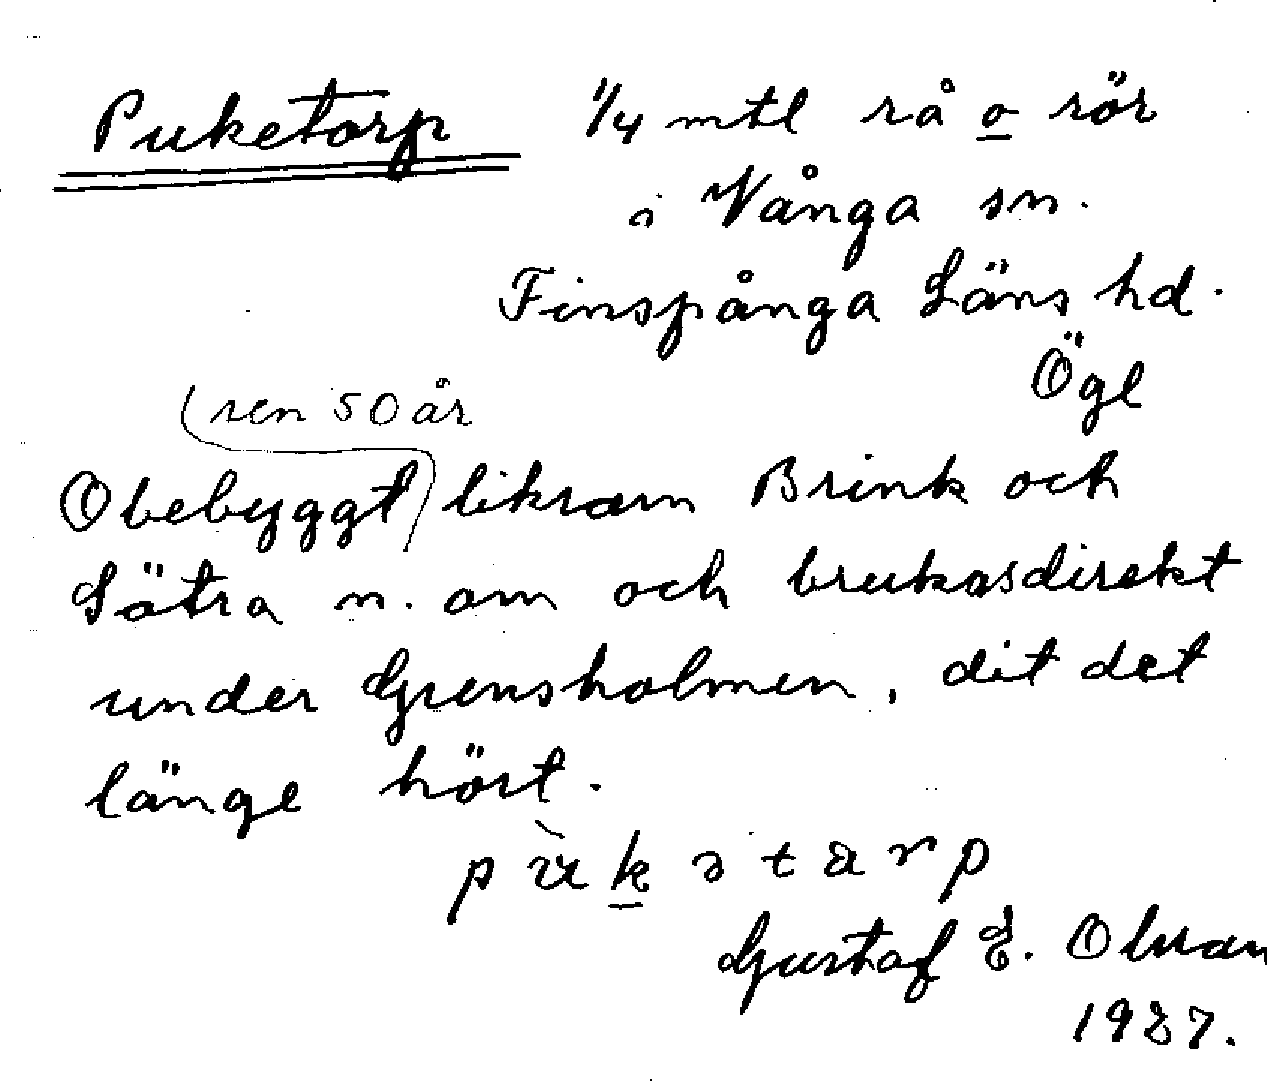 Puketorp 1/4 mtl rå o rör
i Vånga sn.
Finspånga Läns hd.
Ögl
(sen 50 år
Obebyggt) liksom Brink och
Sätra m. om och brukas direkt
under Grensholmen, dit det
länge hört.
pùkətarp
Gustaf E. Olsson
1937.